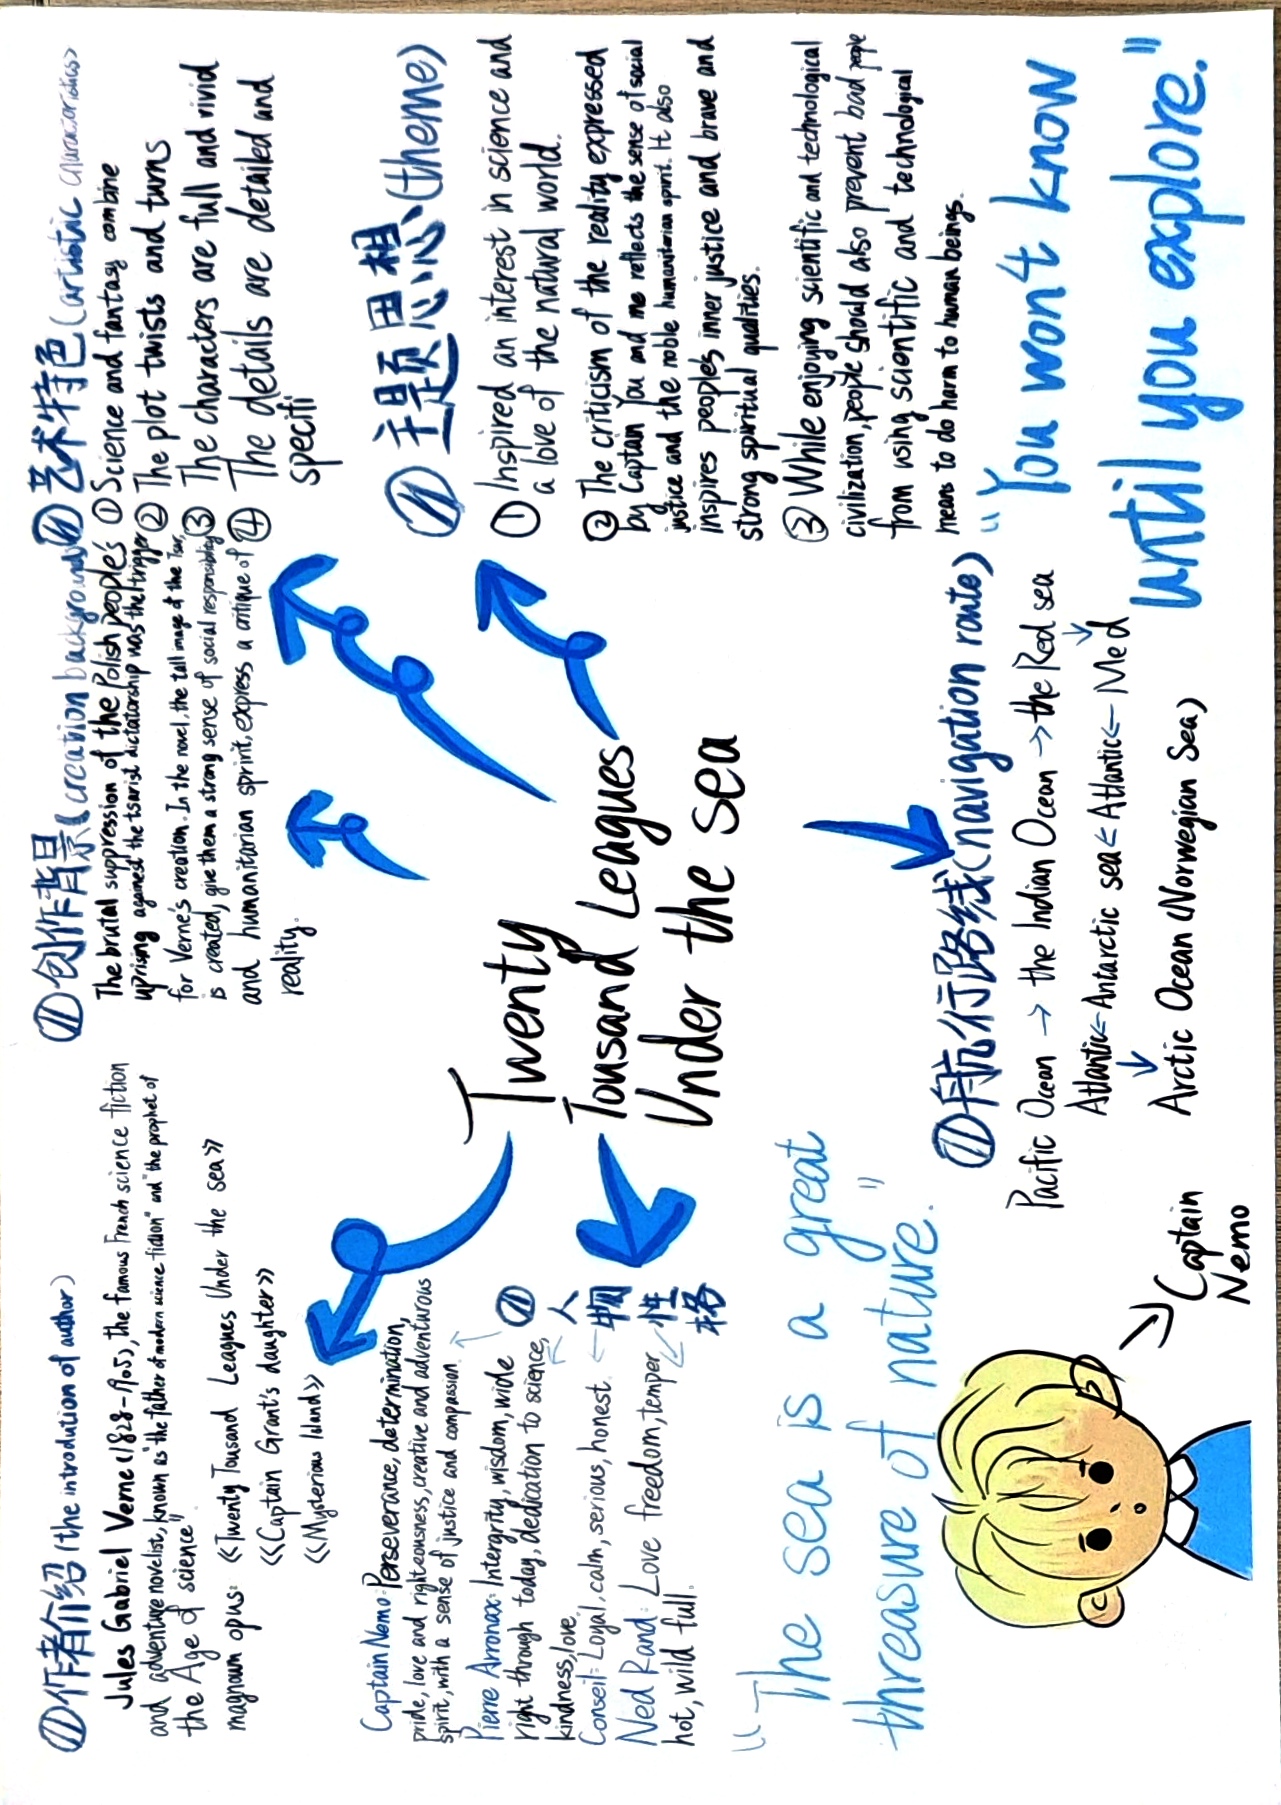 作者介绍(the introdution of author)
Jules Gabriel Verne(1828-1905),the famous French science fiction
and adventure novelist, known as "the father of modern science fiction" and "the prophet of
the Age of science".
magnoum opus: 《Twenty Tousand Leagues Under the sea》
《Captain Grant's daughter》
《Mysterious Island》
创作背景(creation background)
The brutal suppression of the Polish people's
uprising against the tsarist dictatorship was the trigger
for Verne's creation. In the novel, the tall image of the Tsar,
is created, give them a strong sense of social responsibility
and humanitarian spririt, express a critique of
reality.
艺术特色(artistic characteristics)
① Science and fantasy combine
② The plot twists and turns
③ The characters are full and vivid
④ The details are detailed and
specifi
Captain Nemo: Perseverance, determination,
pride, love and righteousness, creative and adventurous
spirit, with a sense of justice and compassion.
Pierre Arronax: Intergrity, wisdom, wide
right through today, dedication to science,
kindness, love.
Conseil: Loyal, calm, serious, honest.
Ned Rand: Love freedom, temper
hot, wild full.
人物性格
Twenty
Tousand Leagues
Under the sea
主题思想(theme)
① Inspired an interest in science and
a love of the natural world.
② The criticism of the reality expressed
by Captain You and me reflects the sense of social
justice and the noble humanitarian spirit. It also
inspires people's inner justice and brave and
strong spiritual qualities.
③ While enjoying scientific and technological
civilization, people should also prevent bad people
from using scientific and technological
means to do harm to human beings.
"The sea is a great
threasure of nature."
航行路线(navigation route)
Pacific Ocean → the Indian Ocean → the Red sea
↓
Atlantic ← Antarctic sea ← Atlantic ← Med
↓
Arctic Ocean (Norwegian Sea)
Captain
Nemo
"You won't know
until you explore."